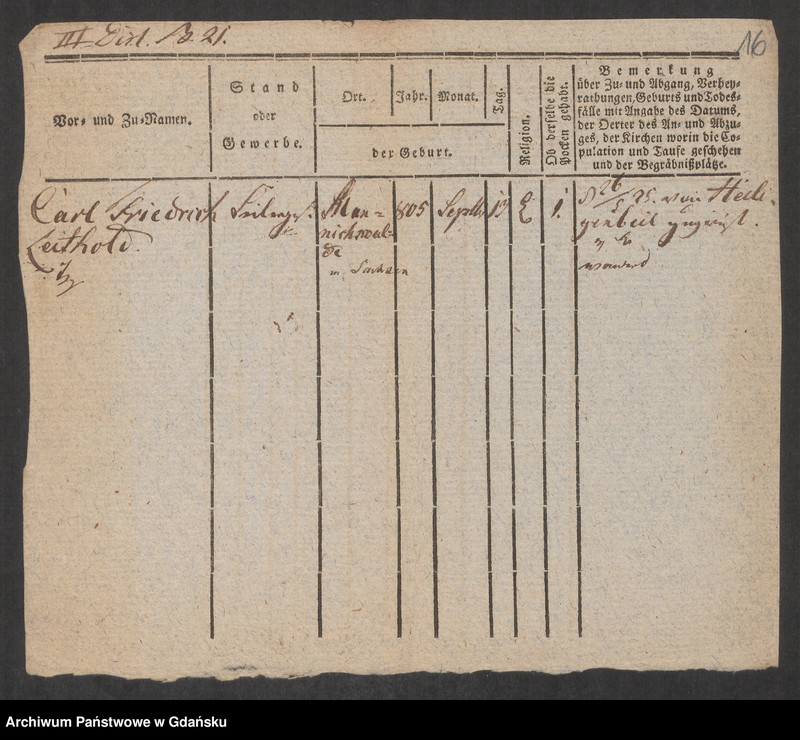 III Dist. No. 21.
16
Vor- und Zu-Namen.
Stand
oder
Gewerbe.
Ort.
Jahr.
Monat.
Tag.
der Geburt.
Religion.
Ob derselbe die
Pocken gehabt.
Bemerkung
über Zu- und Abgang, Verhey-
rathungen, Geburts und Todes-
fälle mit Angabe des Datums,
der Oerter des An- und Abzu-
ges, der Kirchen worin die Co-
pulation und Taufe geschehen
und der Begräbnißplätze.
Carl Friedrich
Leithold.
Seilerges.
Man=
nichswal=
de
in Sachsen
805
Septbr
13
E
1.
26/5 25. von Heili-
genbeil zugereist.